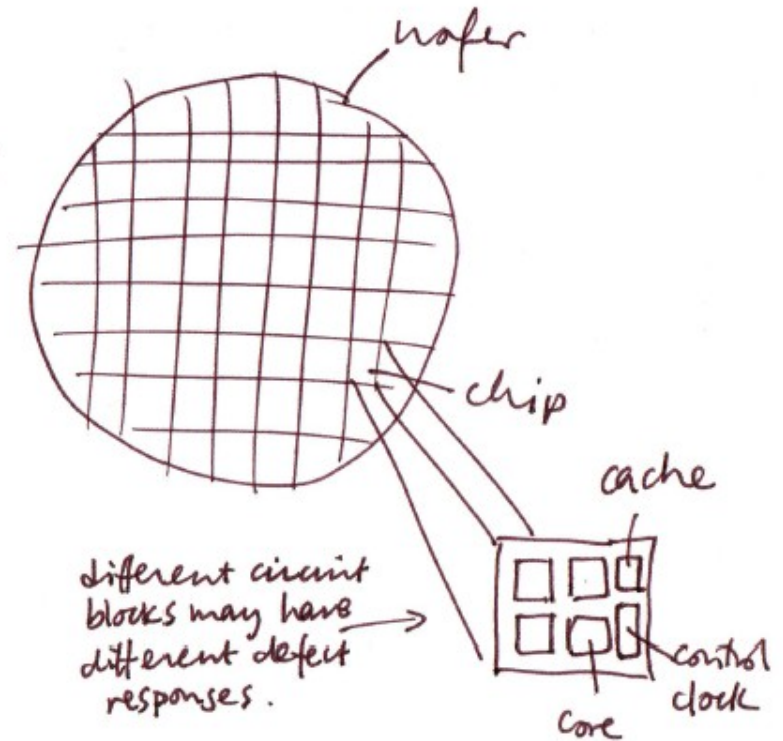 wafer
chip
cache
different circuit
blocks may have
different defect
responses.
control
clock
core